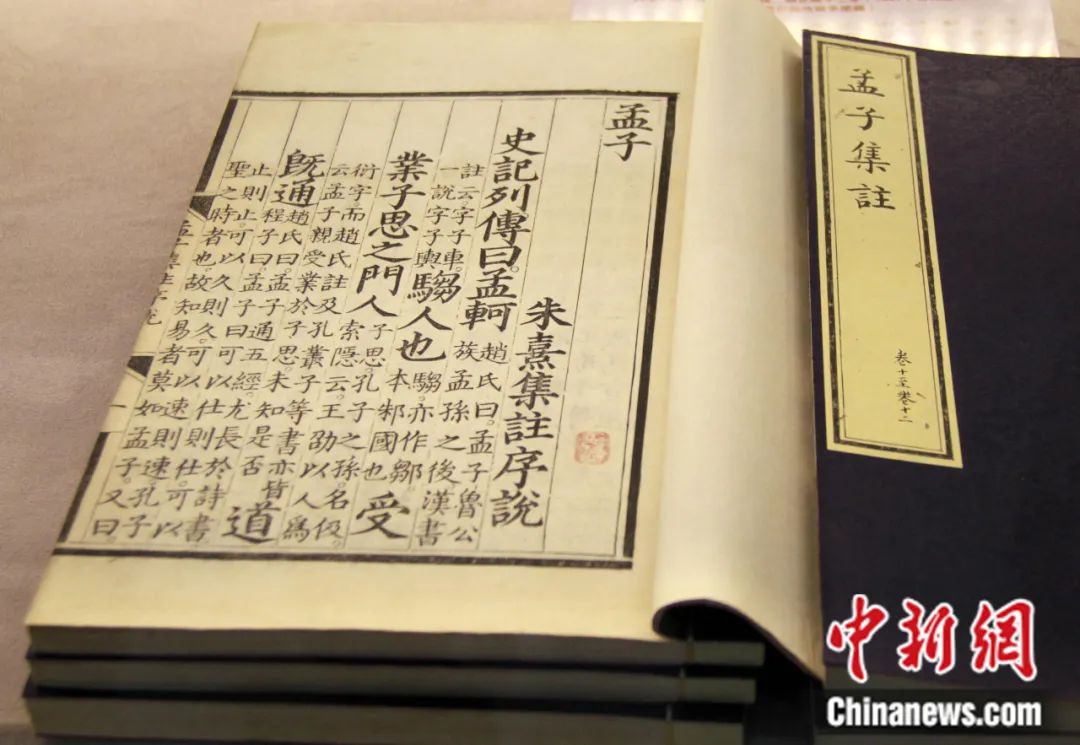 孟子
朱熹集註序說
史記列傳曰。孟軻
趙氏曰。孟子魯公
族孟孫之後漢書
註云。字子車。
一說字子輿
騶人也
騶亦作鄒。
本邾國也
受
業子思之門人
子思孔子之孫名伋。
索隱云。王劭以人爲
衍字而趙氏註及孔叢子等書亦皆
云孟子親受業於子思。未知是否
道
既通
趙氏曰。孟子通五經。尤長於詩書。
程子曰。孟子曰可以仕則仕。可以
止則止。可以久則久。可以速則速。孔子
聖之時者也。故知易者莫如孟子。又曰
孟子集註
卷十至卷十二
中新網
Chinanews.com